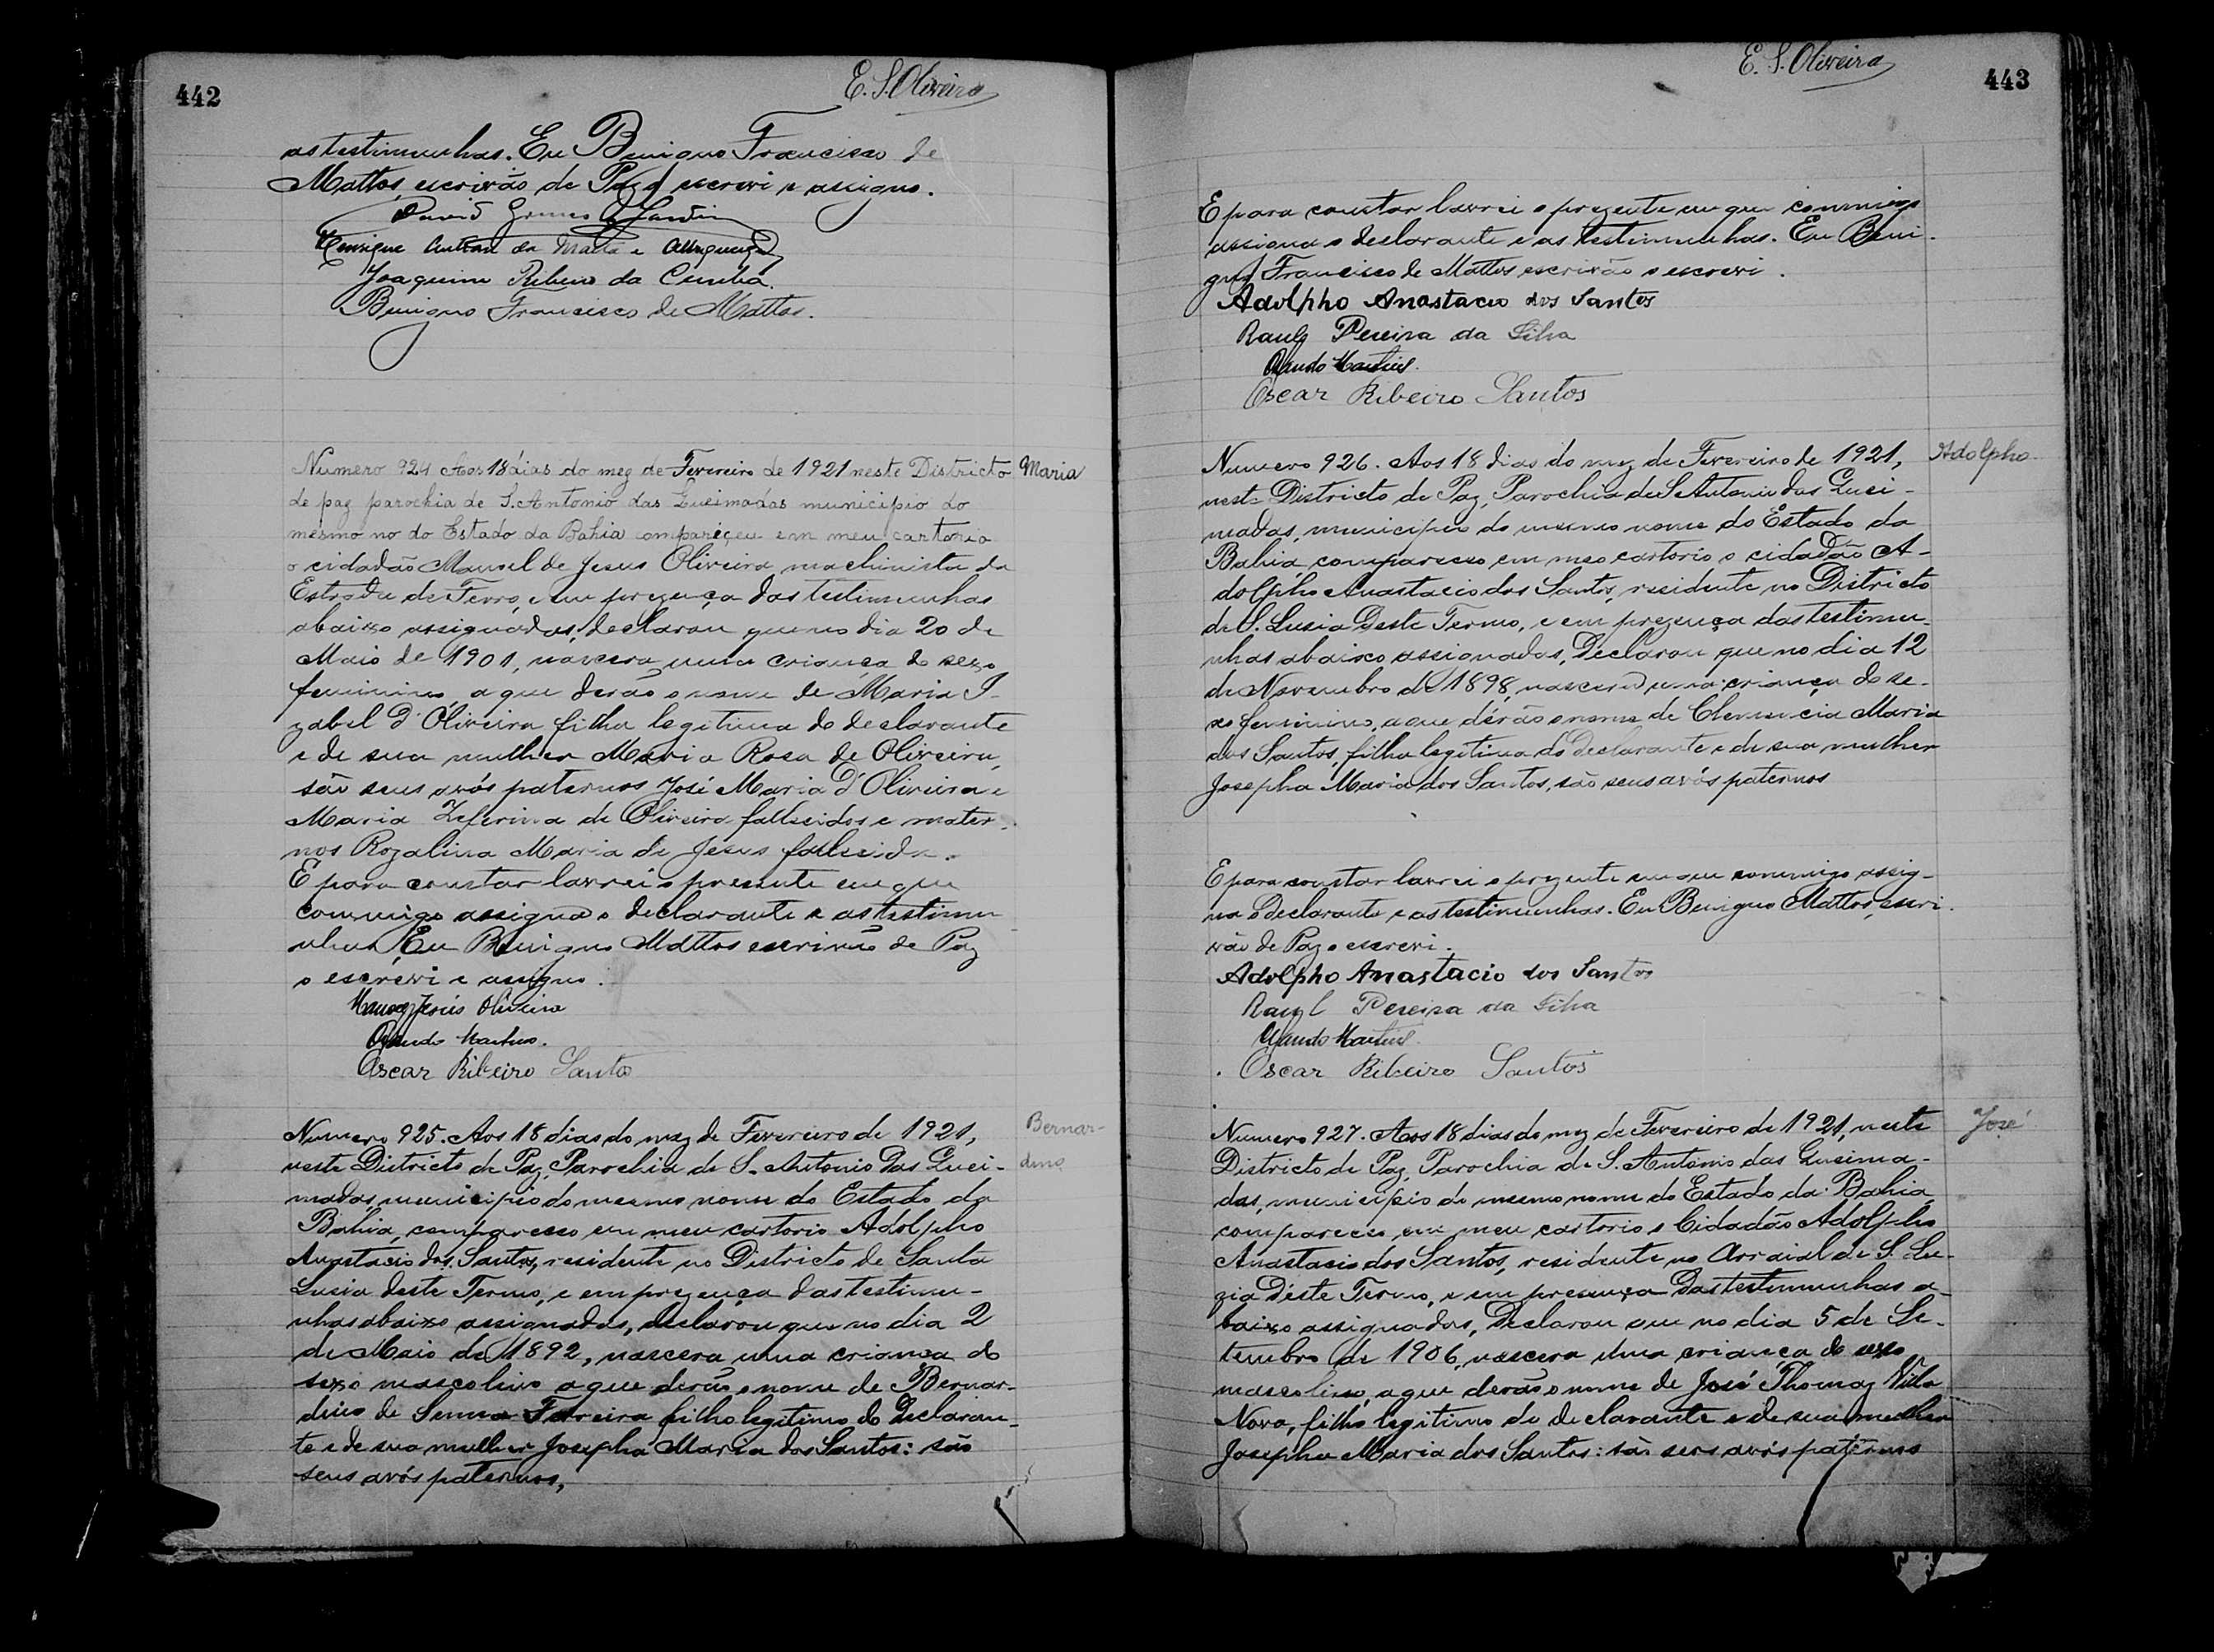 442
E. S. Oliveira
as testimunhas. Eu Benigno Francisco de
Mattos, escrivão de Paz o escrevi e assigno.
David Gomes
Henrique da Matta e
Joaquim Ribeiro da Cunha.
Benigno Francisco de Mattos.
Numero 924 Aos 18 dias do mez de Fevereiro de 1921 neste Districto
Maria
de paz parochia de S. Antonio das Queimadas municipio do
mesmo no do Estado da Bahia compareçeu em meu cartorio
o cidadão Manoel de Jesus Oliveira, machinista da
Estrada de Ferro, e em prezença das testimunhas
abaixo assignadas, declarou que no dia 20 de
Maio de 1901, nascera uma criança do sexo
feminino, a que derão o nome de Maria I-
zabel d'Oliveira, filha legitima do declarante
e de sua mulher Maria Rosa de Oliveira,
são seus avós paternos José Maria d'Oliveira e
Maria Zeferina de Oliveira fallecidos e mater-
nos Rozalina Maria de Jesus fallecida.
E para constar lavrei o presente em que
commigo assigna o declarante e as testimu
nhas. Eu Benigno Mattos escrivão de Paz
o escrevi e assigno.
Manoel Jesus Oliveira
Martins.
Oscar Ribeiro Santos
Numero 925. Aos 18 dias do mez de Fevereiro de 1921,
Bernar-
neste Districto de Paz, Parochia de S. Antonio das Quei-
dino
madas, municipio do mesmo nome do Estado da
Bahia, compareceo em meu cartorio Adolpho
Anastacio dos Santos, residente no Districto de Santa
Lusia deste Termo, e em prezença das testimu-
nhas abaixo assignadas, declarou que no dia 2
de Maio de 1892, nascera uma criança do
sexo mascolino a que derão o nome de Bernar-
dino de Senna Ferreira filho legitimo do Declaran-
te e de sua mulher Josepha Maria dos Santos: são
seus avós paternos,
E. S. Oliveira
443
E para constar lavrei o prezente em que commigo
assigna o declarante e as testimunhas. Eu Beni-
gno Francisco de Mattos escrivão o escrevi.
Adolpho Anastacio dos Santos
Raul Pereira da Silva
Martins.
Oscar Ribeiro Santos
Numero 926. Aos 18 dias do mez de Fevereiro de 1921,
Adolpho
neste Districto de Paz, Parochia de S. Antonio das Quei-
madas, municipio do mesmo nome do Estado da
Bahia compareceo em meo cartorio o cidadão A-
dolpho Anastacio dos Santos, residente no Districto
de S. Lusia deste Termo, e em prezença das testimu-
nhas abaixo assignadas, Declarou que no dia 12
de Novembro de 1898, nascera uma criança do se-
xo feminino, a que dérão o nome de Clemencia Maria
dos Santos, filha legitima do Declarante e de sua mulher
Josepha Maria dos Santos, são seus avós paternos
E para constar lavrei o prezente em que commigo assig-
na o Declarante e as testimunhas. Eu Benigno Mattos, escri-
vão de Paz o escrevi.
Adolpho Anastacio dos Santos
Raul Pereira da Silva
Martins.
Oscar Ribeiro Santos
Numero 927. Aos 18 dias do mez de Fevereiro de 1921, neste
José
Districto de Paz, Parochia de S. Antonio das Queima-
das, municipio do mesmo nome do Estado da Bahia,
compareceu em meu cartorio o Cidadão Adolpho
Anastacio dos Santos, residente no Arraial de S. Lu-
zia deste Termo, e em presença das testimunhas a-
baixo assignadas, Declarou que no dia 5 de Se-
tembro de 1906, nascera uma criança do sexo
mascolino, a que derão o nome de José Thomaz Villa
Nova, filho legitimo do declarante e de sua mulher
Josepha Maria dos Santos: são seus avós paternos